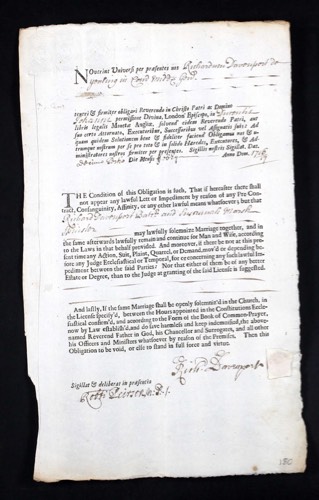 NOverint Universi per præsentes nos Richardum Davenport de
teneri & firmiter obligari Reverendo in Christo Patri ac Domino
Johanni permissione Divina, London' Episcopo, in Ducentis
libris legalis Monetæ Angliæ, solvend' eidem Reverendo Patri, aut
suo certo Attornato, Executoribus, Successoribus vel Assignatis suis: Ad
quam quidem Solutionem bene & fideliter faciend' Obligamus nos & ut-
trumque nostrum per se pro toto & in solido Hæredes, Executores, & Ad-
ministratores nostros firmiter per præsentes. Sigillis nostris Sigillat. Dat.
Die Mensis Anno Dom.
THE Condition of this Obligation is such, That if hereafter there shall
not appear any lawful Lett or Impediment by reason of any Pre-Con-
tract, Consanguinity, Affinity, or any other lawful means whatsoever; but that
Richard Davenport and Susannah
Spinster
may lawfully solemnize Marriage together, and in
the same afterwards lawfully remain and continue for Man and Wife, according
to the Laws in that behalf provided. And moreover, if there be not at this pre-
sent time any Action, Suit, Plaint, Quarrel, or Demand, mov'd or depending be-
fore any Judge Ecclesiastical or Temporal, for or concerning any such lawful Im-
pediment between the said Parties: Nor that either of them be of any better
Estate or Degree, than to the Judge at granting of the said License is suggested.
And lastly, If the same Marriage shall be openly solemniz'd in the Church, in
the License specify'd, between the Hours appointed in the Constitutions Eccle-
siastical confirm'd, and according to the Form of the Book of Common-Prayer,
now by Law establish'd, and do save harmless and keep indemnified, the above-
named Reverend Father in God, his Chancellor and Surrogates, and all other
his Officers and Ministers whatsoever by reason of the Premises. Then this
Obligation to be void, or else to stand in full force and virtue.
Rich: Davenport
Sigillat & deliberat in præsentia